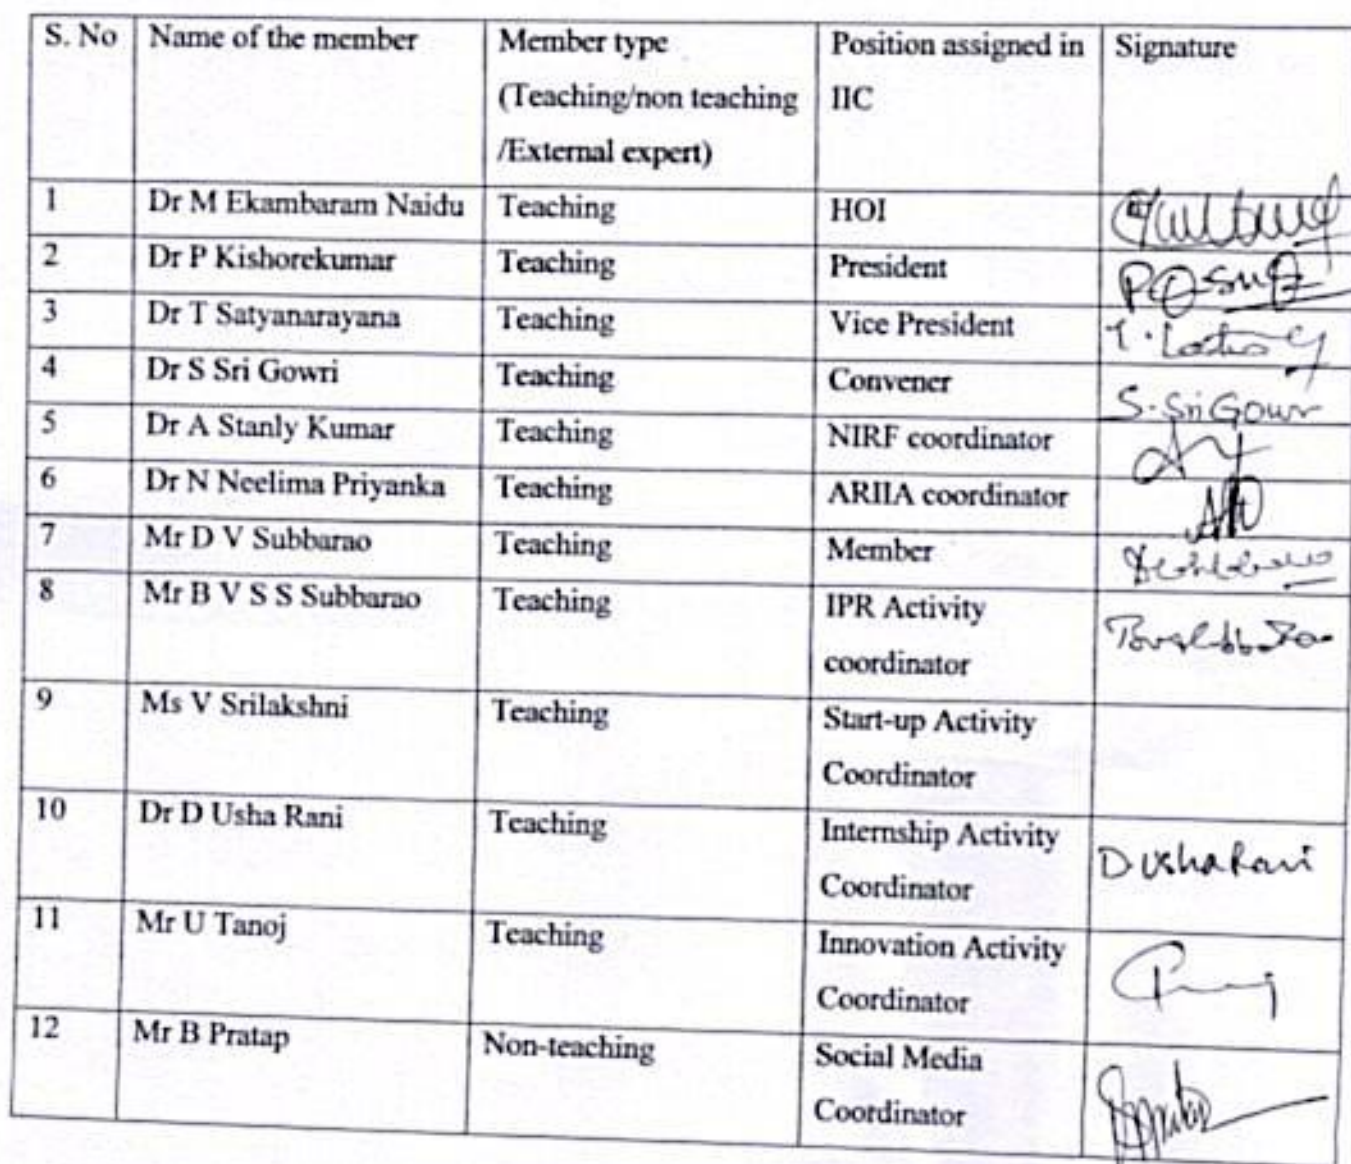 S. No Name of the member Member type Position assigned in Signature
(Teaching/non teaching IIC
/External expert)
1 Dr M Ekambaram Naidu Teaching HOI
2 Dr P Kishorekumar Teaching President
3 Dr T Satyanarayana Teaching Vice President
4 Dr S Sri Gowri Teaching Convener S. Sri Gowri
5 Dr A Stanly Kumar Teaching NIRF coordinator
6 Dr N Neelima Priyanka Teaching ARIIA coordinator
7 Mr D V Subbarao Teaching Member
8 Mr B V S S Subbarao Teaching IPR Activity
coordinator
9 Ms V Srilakshni Teaching Start-up Activity
Coordinator
10 Dr D Usha Rani Teaching Internship Activity
Coordinator D Usha Rani
11 Mr U Tanoj Teaching Innovation Activity
Coordinator
12 Mr B Pratap Non-teaching Social Media
Coordinator